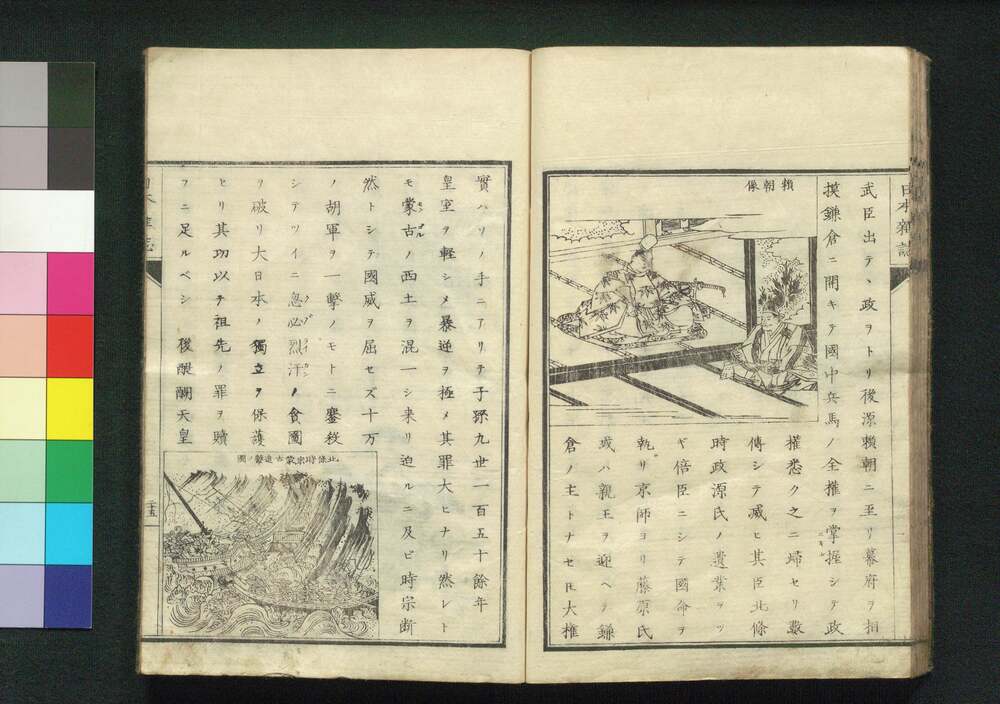 日本雜誌
武臣出テヽ政ヲトリ後源賴朝ニ至リ幕府ヲ相
摸鎌倉ニ開キテ國中兵馬ノ全權ヲ掌握シテ政
ニギル
賴朝像
權悉ク之ニ歸セリ數
傳シテ滅ヒ其臣北條
時政源氏ノ遺業ヲツ
ギ倍臣ニシテ國命ヲ
執リ京師ヨリ藤原氏
或ハ親王ヲ迎ヘテ鎌
倉ノ主トナセ𪜈大權
實ハソノ手ニアリテ子孫九世一百五十餘年
皇室ヲ輕シメ暴逆ヲ極メ其罪大ヒナリ然レト
モ蒙古ノ西土ヲ混一シ来リ迫ルニ及ビ時宗断
モウゴル
然トシテ國威ヲ屈セズ十万
ノ胡軍ヲ一擊ノモトニ鏖殺
シテツイニ忽必烈汗ノ貪圖
ヲ破リ大日本ノ獨立ヲ保護
セリ其功以テ祖先ノ罪ヲ贖
フニ足ルベシ 後醍醐天皇
北條時宗蒙古追擊ノ圖